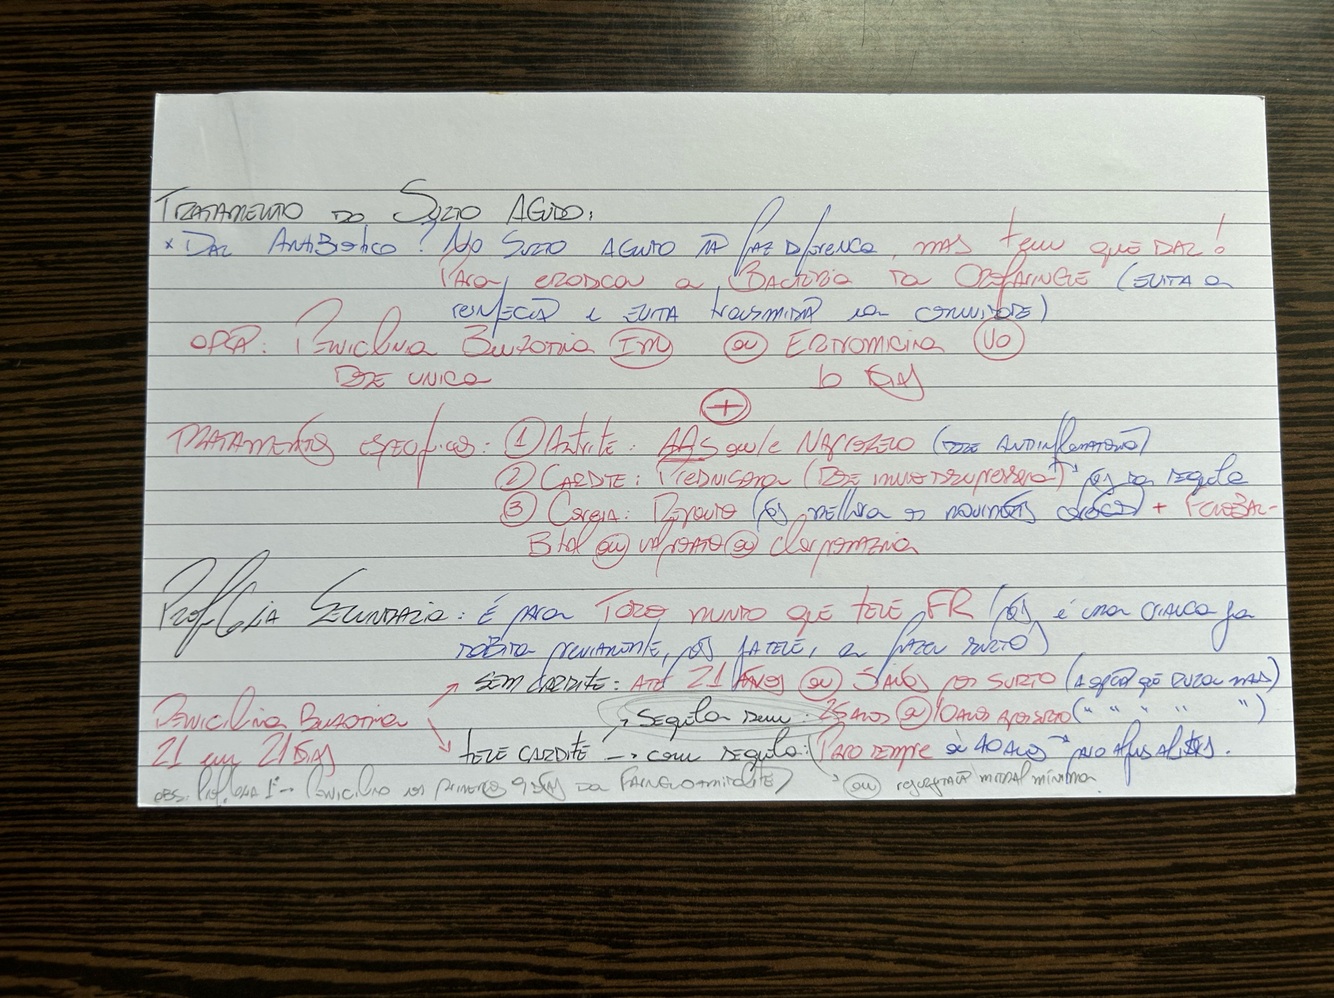 TRATAMENTO DO SURTO AGUDO:
* DAR ANTIBIÓTICO? NO SURTO AGUDO NÃO FAZ DIFERENÇA, MAS tem que DAR!
PARA ERRADICAR A BACTÉRIA DA OROFARINGE (EVITA A
REINFECÇÃO E EVITA TRANSMISSÃO NA COMUNIDADE)
OPÇÃO: PENICILINA BENZATINA IM ou ERITROMICINA VO
DOSE UNICA 10 DIAS
+
TRATAMENTOS ESPECÍFICOS: 1 Artrite: AAS ou/e NAPROXENO (DOSE ANTIINFLAMATÓRIA)
2 CARDITE: PREDNISONA (DOSE IMUNOSSUPRESSORA) DA SEQUELA
3 Coreia: REPOUSO (SÓ MELHORA OS MOVIMENTOS COREICOS) + FENOBAR-
BITAL ou VALPROATO ou clorpromazina
PROFILAXIA SECUNDÁRIA: É PARA TODO MUNDO QUE TEVE FR (SÓ é uma CRIANÇA JÁ
PREVIAMENTE, JÁ TEVE, A FAZER SURTO)
SEM CARDITE: ATÉ 21 ANOS ou 5 ANOS PÓS SURTO (A OPÇÃO QUE DURAR MAIS)
PENICILINA BENZATINA → Sequela : 25 ANOS ou 10 ANOS APÓS SURTO (" " " " ")
21 em 21 DIAS TEVE CARDITE → com sequela: PARA SEMPRE 40 ANOS →
OBS: PROFILAXIA 1ª → PENICILINA NOS PRIMEIROS 9 DIAS DA FARINGOAMIGDALITE → ou regurgitação mitral mínima